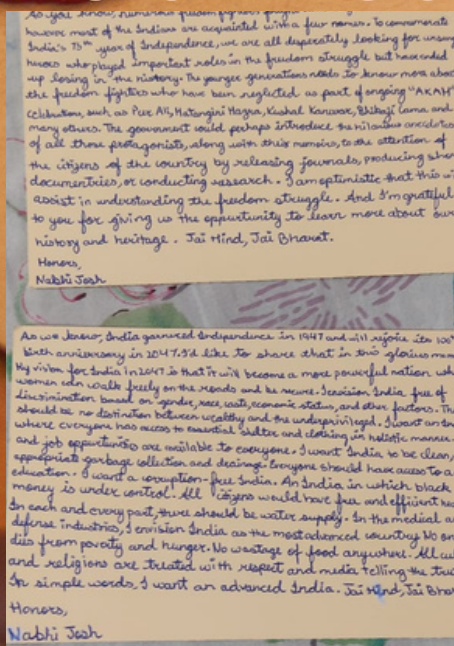 As you know, numerous freedom fighters
however most of the Indians are acquainted with a few names. To commemorate
India's 75th year of Independence, we are all desperately looking for unsung
heroes who played important roles in the freedom struggle but have ended
up losing in the history. The younger generations needs to know more about
the freedom fighters who have been neglected as part of ongoing "AKAM"
celebrations, such as Peer Ali, Matangini Hazra, Kushal Konwar, Bhikaji Cama and
many others. The government could perhaps introduce the hilarious anecdotes
of all those protagonists, along with their memoirs, to the attention of
the citizens of the country by releasing journals, producing shor
documentries, or conducting research. I am optimistic that this wi
assist in understanding the freedom struggle. And I'm grateful
to you for giving us the oppurtunity to learn more about our
history and heritage. Jai Hind, Jai Bharat.
Honors,
Nabhi Josh
As we know, India garnered Independence in 1947 and will rejoice its 100
birth anniversary in 2047. I'd like to share that in this glorious
My vision for India in 2047 is that it will become a more powerful nation wh
women can walk freely on the roads and be secure. I envision India free of
discrimination based on gender, race, caste, economic status, and other factors. Th
should be no distinction between wealthy and the underprivileged. I want an In
where everyone has access to essential shelter and clothing in holistic manner.
and job oppurtunities are available to everyone. I want India to be clean,
appropriate garbage collection and drainage. Everyone should have access to a
education. I want a corruption-free India. An India in which black
money is under control. All citizens would have free and efficient hea
In each and every part, there should be water supply. In the medical a
defense industries, I envision India as the most advanced country. No on
dies from poverty and hunger. No wastage of food anywhere. All cul
and religions are treated with respect and media telling the tru
In simple words, I want an advanced India. Jai Hind, Jai Bhar
Honors,
Nabhi Josh